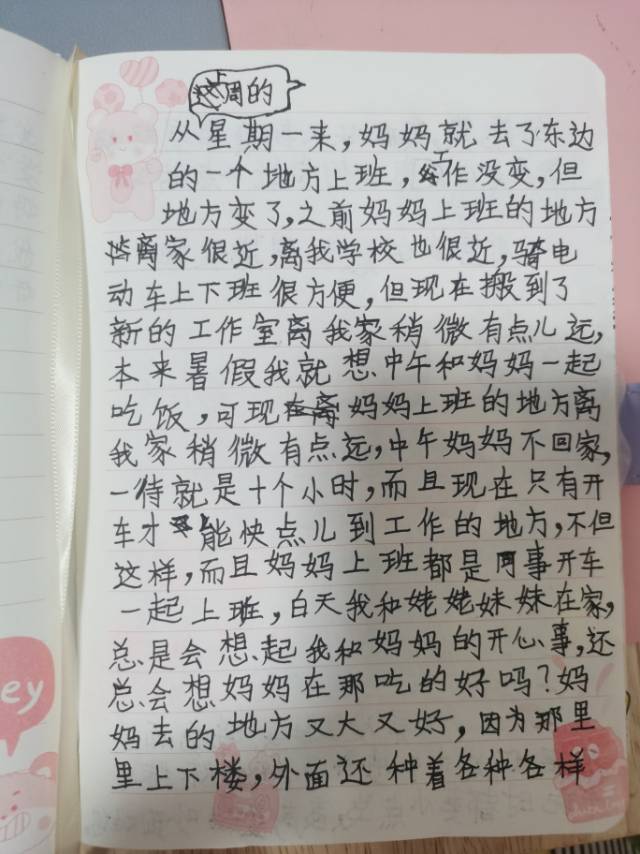 这周的
从星期一来，妈妈就去了东边
的一个地方上班，工作没变，但
地方变了，之前妈妈上班的地方
离家很近，离我学校也很近，骑电
动车上下班很方便，但现在搬到了
新的工作室离我家稍微有点儿远，
本来暑假我就想中午和妈妈一起
吃饭，可现在离妈妈上班的地方离
我家稍微有点远，中午妈妈不回家，
一待就是十个小时，而且现在只有开
车才能快点儿到工作的地方，不但
这样，而且妈妈上班都是同事开车
一起上班，白天我和姥姥妹妹在家，
总是会想起我和妈妈的开心事，还
总会想妈妈在那吃的好吗？妈
妈去的地方又大又好，因为那里
里上下楼，外面还种着各种各样
ey